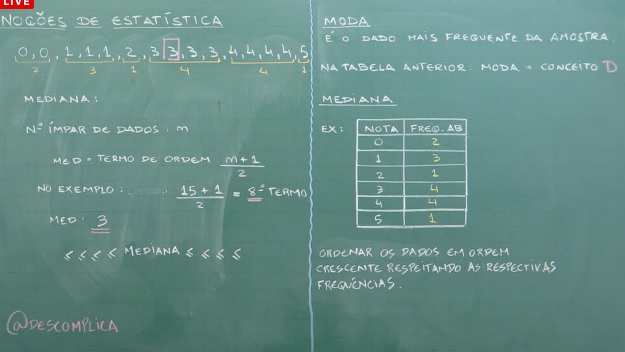 LIVE
NOÇÕES DE ESTATÍSTICA
0,0,1,1,1,2,3,3,3,3,4,4,4,4,5
2 3 1 4 4 1
MEDIANA:
Nº ÍMPAR DE DADOS: m
MED = TERMO DE ORDEM m+1
2
NO EXEMPLO: 15+1 = 8º TERMO
2
MED: 3
≤ ≤ ≤ ≤ MEDIANA ≤ ≤ ≤ ≤
@DESCOMPLICA
MODA
É O DADO MAIS FREQUENTE DA AMOSTRA.
NA TABELA ANTERIOR: MODA = CONCEITO D
MEDIANA
EX: NOTA FREQ. AB
0 2
1 3
2 1
3 4
4 4
5 1
ORDENAR OS DADOS EM ORDEM
CRESCENTE RESPEITANDO AS RESPECTIVAS
FREQUÊNCIAS.